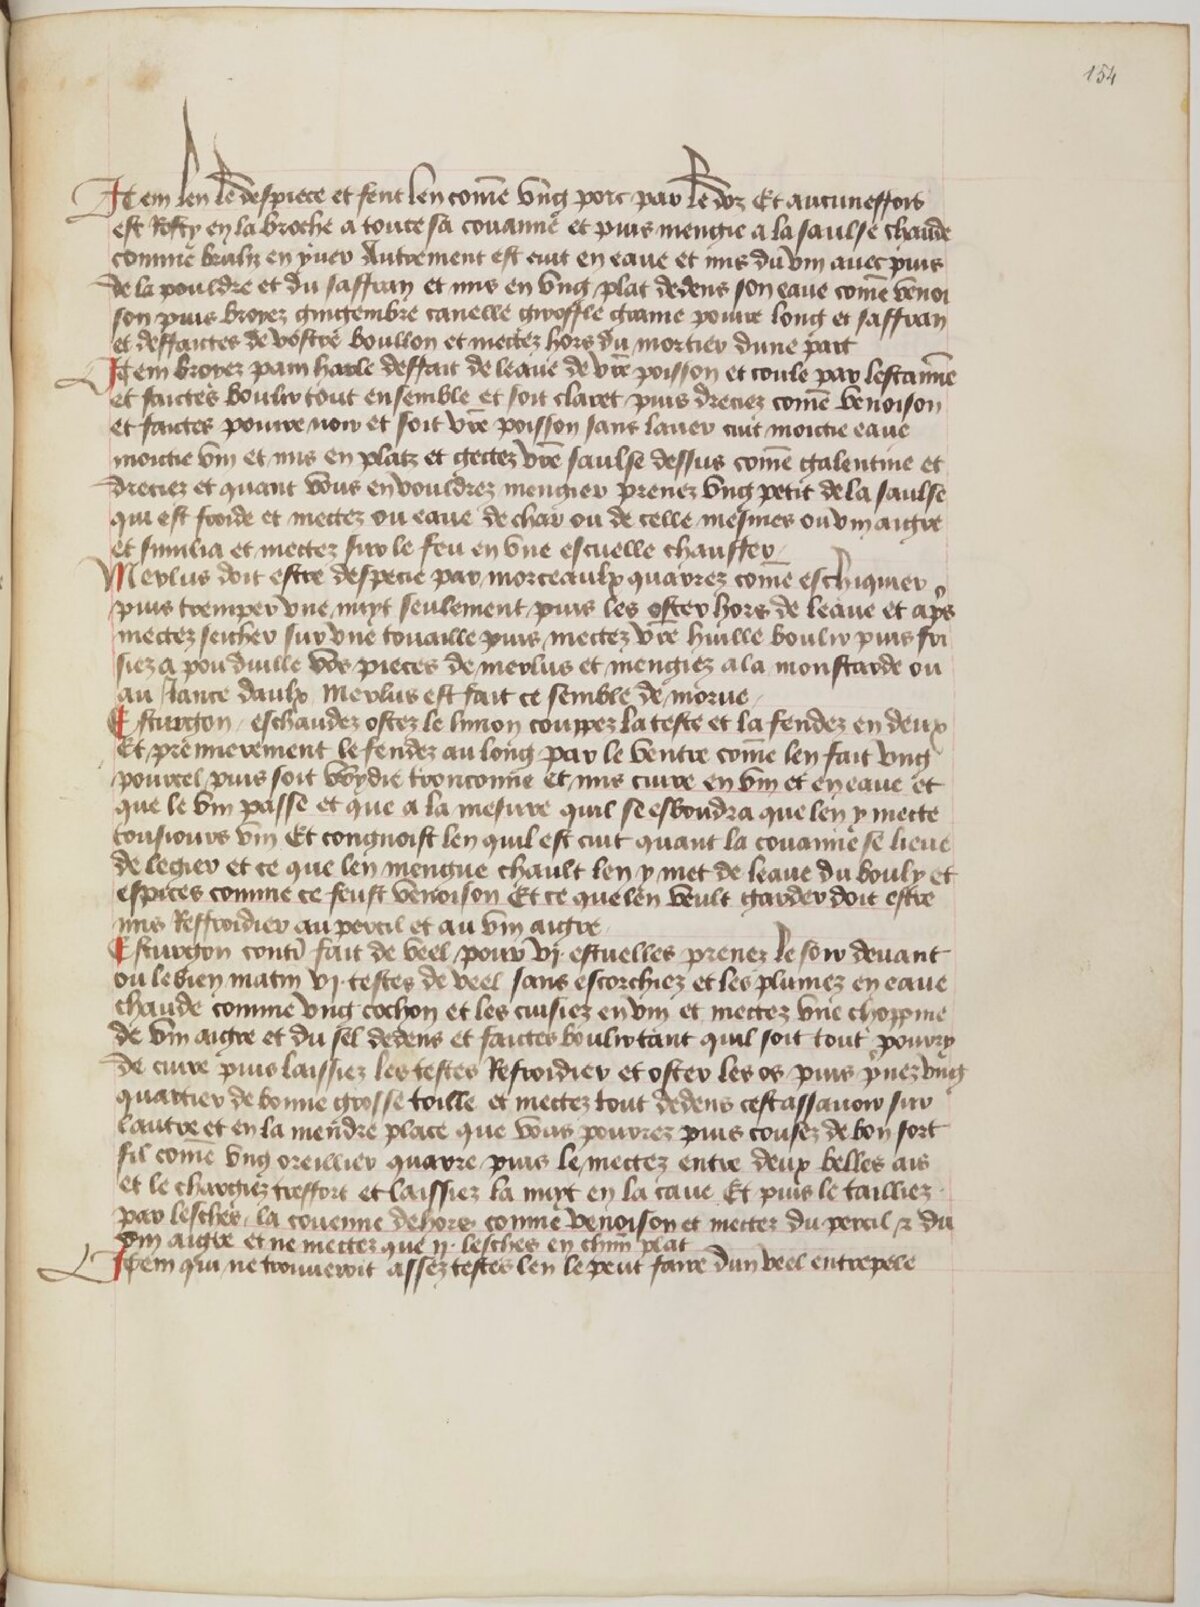 154
Item len le despiece et fent len com̄e vng porc par le doz Et aucuneffois
est Rosty en la broche a toute sa couanne et puis mengie a la saulse chaude
comme braliz en yuer Autrement est cuit en eaue et mis du vin auec puis
de la pouldre et du saffran et mis en vng plat dedens son eaue com̄e venoi
son puis broyez gingembre canelle giroffle graine poiure long et saffran
et deffaictes de vostre boullon et mectez hors du mortier dune part
Item broyez pain harle deffait de leaue de vr̄e poisson et coule par lestam̄e
et faictes boulir tout ensemble et soit claret puis dreciez com̄e venoison
et faictes poiure noir et soit vr̄e poisson sans lauer cuit moictie eaue
moictie vin et mis en platz et gectez vr̄e saulse dessus com̄e galentine et
dreciez et quant vous en vouldrez mengier prenez vng petit de la saulse
qui est froide et mectez ou eaue de char ou de celle mesmes ou vin aigre
et similia et mectez sur le feu en vne escuelle chauffer
Merlus doit estre despecie par morceaulx quarrez com̄e eschiquier
puis tremper vne nuyt seulement puis les oster hors de leaue et ap̄s
mectez seicher sur vne touaille puis mectez vr̄e huille boulir puis fri
siez a pou duille voz pieces de merlus et mengiez a la monstarde ou
au Jance daulx Merlus est fait ce semble de morue
Esturgon eschaudez ostez le limon couppez la teste et la fendez en deux
Et premierement le fendez au long par le ventre com̄e len fait vng
pourcel puis soit vvydie tronconne et mis cuire en vin et en eaue et
que le vin passe et que a la mesure quil se esboudra que len y mecte
tousiours vin Et congnoist len quil est cuit quant la couanne se lieue
de legier et ce que len mengue chault len y met de leaue du bouly et
espices comme ce feust venoison Et ce que len veult garder doit estre
mis Reffroidier au percil et au vin aigre
Esturgon cont̄ fait de veel pour vj. escuelles prenez le soir deuant
ou le bien matin vj. testes de veel sans escorchiez et les plumez en eaue
chaude comme vng cochon et les cuisiez en vin et mectez vne choppine
de vin aigre et du sel dedens et faictes boulir tant quil soit tout pourry
de cuire puis laissiez les testes Refroidier et oster les os puis p̄nez vng
quartier de bonne grosse toille et mectez tout dedens cestassauoir sur
lautre et en la mendre place que vous pourrez puis cousez de bon fort
fil com̄e vng oreillier quarre puis le mectez entre deux belles ais
et le chargiez treffort et laissiez la nuyt en la caue Et puis le tailliez
par lesches la couenne dehors comme venoison et mectez du percil ⁊ du
vin aigre et ne mectez que ij. lesches en chm̄ plat
Item qui ne trouueroit assez testes len le peut faire dun veel entrepele